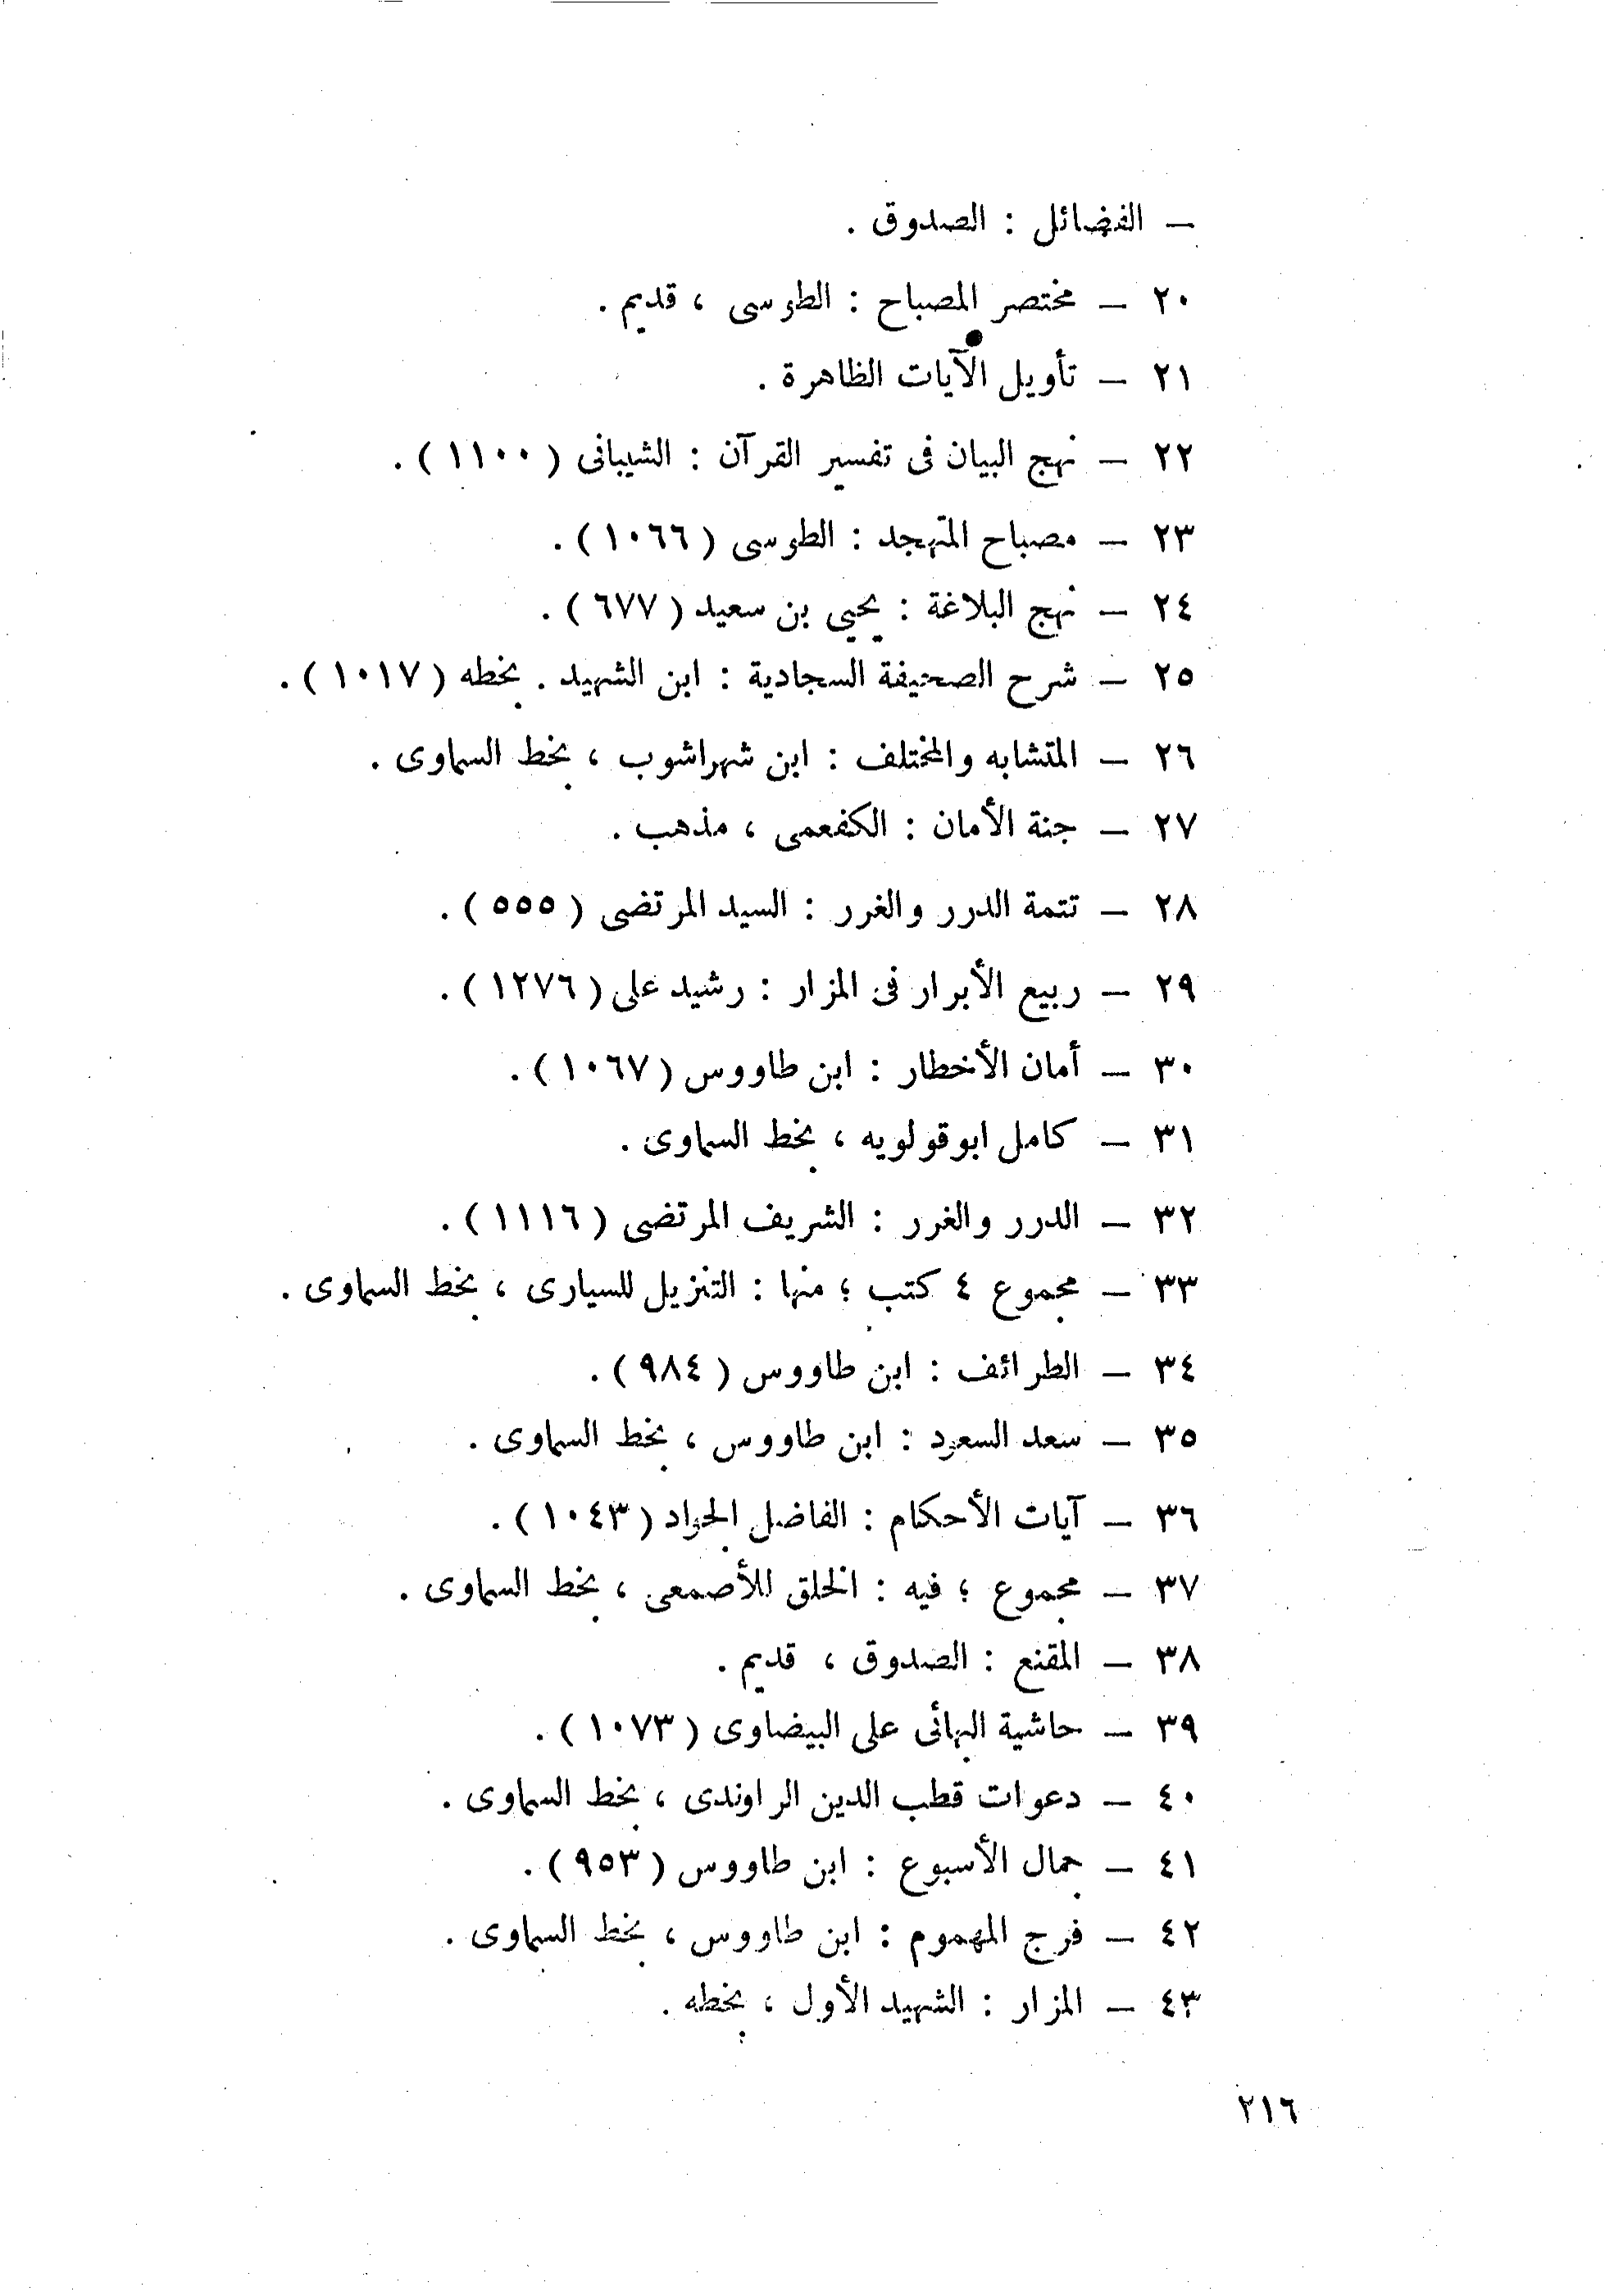 — الفضائل : الصدوق .
٢٠ — مختصر المصباح : الطوسى ، قديم .
٢١ — تأويل الآيات الظاهرة .
٢٢ — نهج البيان فى تفسير القرآن : الشيبانى ( ١١٠٠ ) .
٢٣ — مصباح المتهجد : الطوسى ( ١٠٦٦ ) .
٢٤ — نهج البلاغة : يحيى بن سعيد ( ٦٧٧ ) .
٢٥ — شرح الصحيفة السجادية : ابن الشهيد . بخطه ( ١٠١٧ ) .
٢٦ — المتشابه والمختلف : ابن شهراشوب ، بخط السماوى .
٢٧ — جنة الأمان : الكفعمى ، مذهب .
٢٨ — تتمة الدرر والغرر : السيد المرتضى ( ٥٥٥ ) .
٢٩ — ربيع الأبرار فى المزار : رشيد على ( ١٢٧٦ ) .
٣٠ — أمان الأخطار : ابن طاووس ( ١٠٦٧ ) .
٣١ — كامل ابوقولويه ، بخط السماوى .
٣٢ — الدرر والغرر : الشريف المرتضى ( ١١١٦ ) .
٣٣ — مجموع ٤ كتب ؛ منها : التنزيل للسيارى ، بخط السماوى .
٣٤ — الطرائف : ابن طاووس ( ٩٨٤ ) .
٣٥ — سعد السعود : ابن طاووس ، بخط السماوى .
٣٦ — آيات الأحكام : الفاضل الجواد ( ١٠٤٣ ) .
٣٧ — مجموع ؛ فيه : الخلق للأصمعى ، بخط السماوى .
٣٨ — المقنع : الصدوق ، قديم .
٣٩ — حاشية البهائى على البيضاوى ( ١٠٧٣ ) .
٤٠ — دعوات قطب الدين الراوندى ، بخط السماوى .
٤١ — جمال الأسبوع : ابن طاووس ( ٩٥٣ ) .
٤٢ — فرج المهموم : ابن طاووس ، بخط السماوى .
٤٣ — المزار : الشهيد الأول ، بخطه .
٢١٦